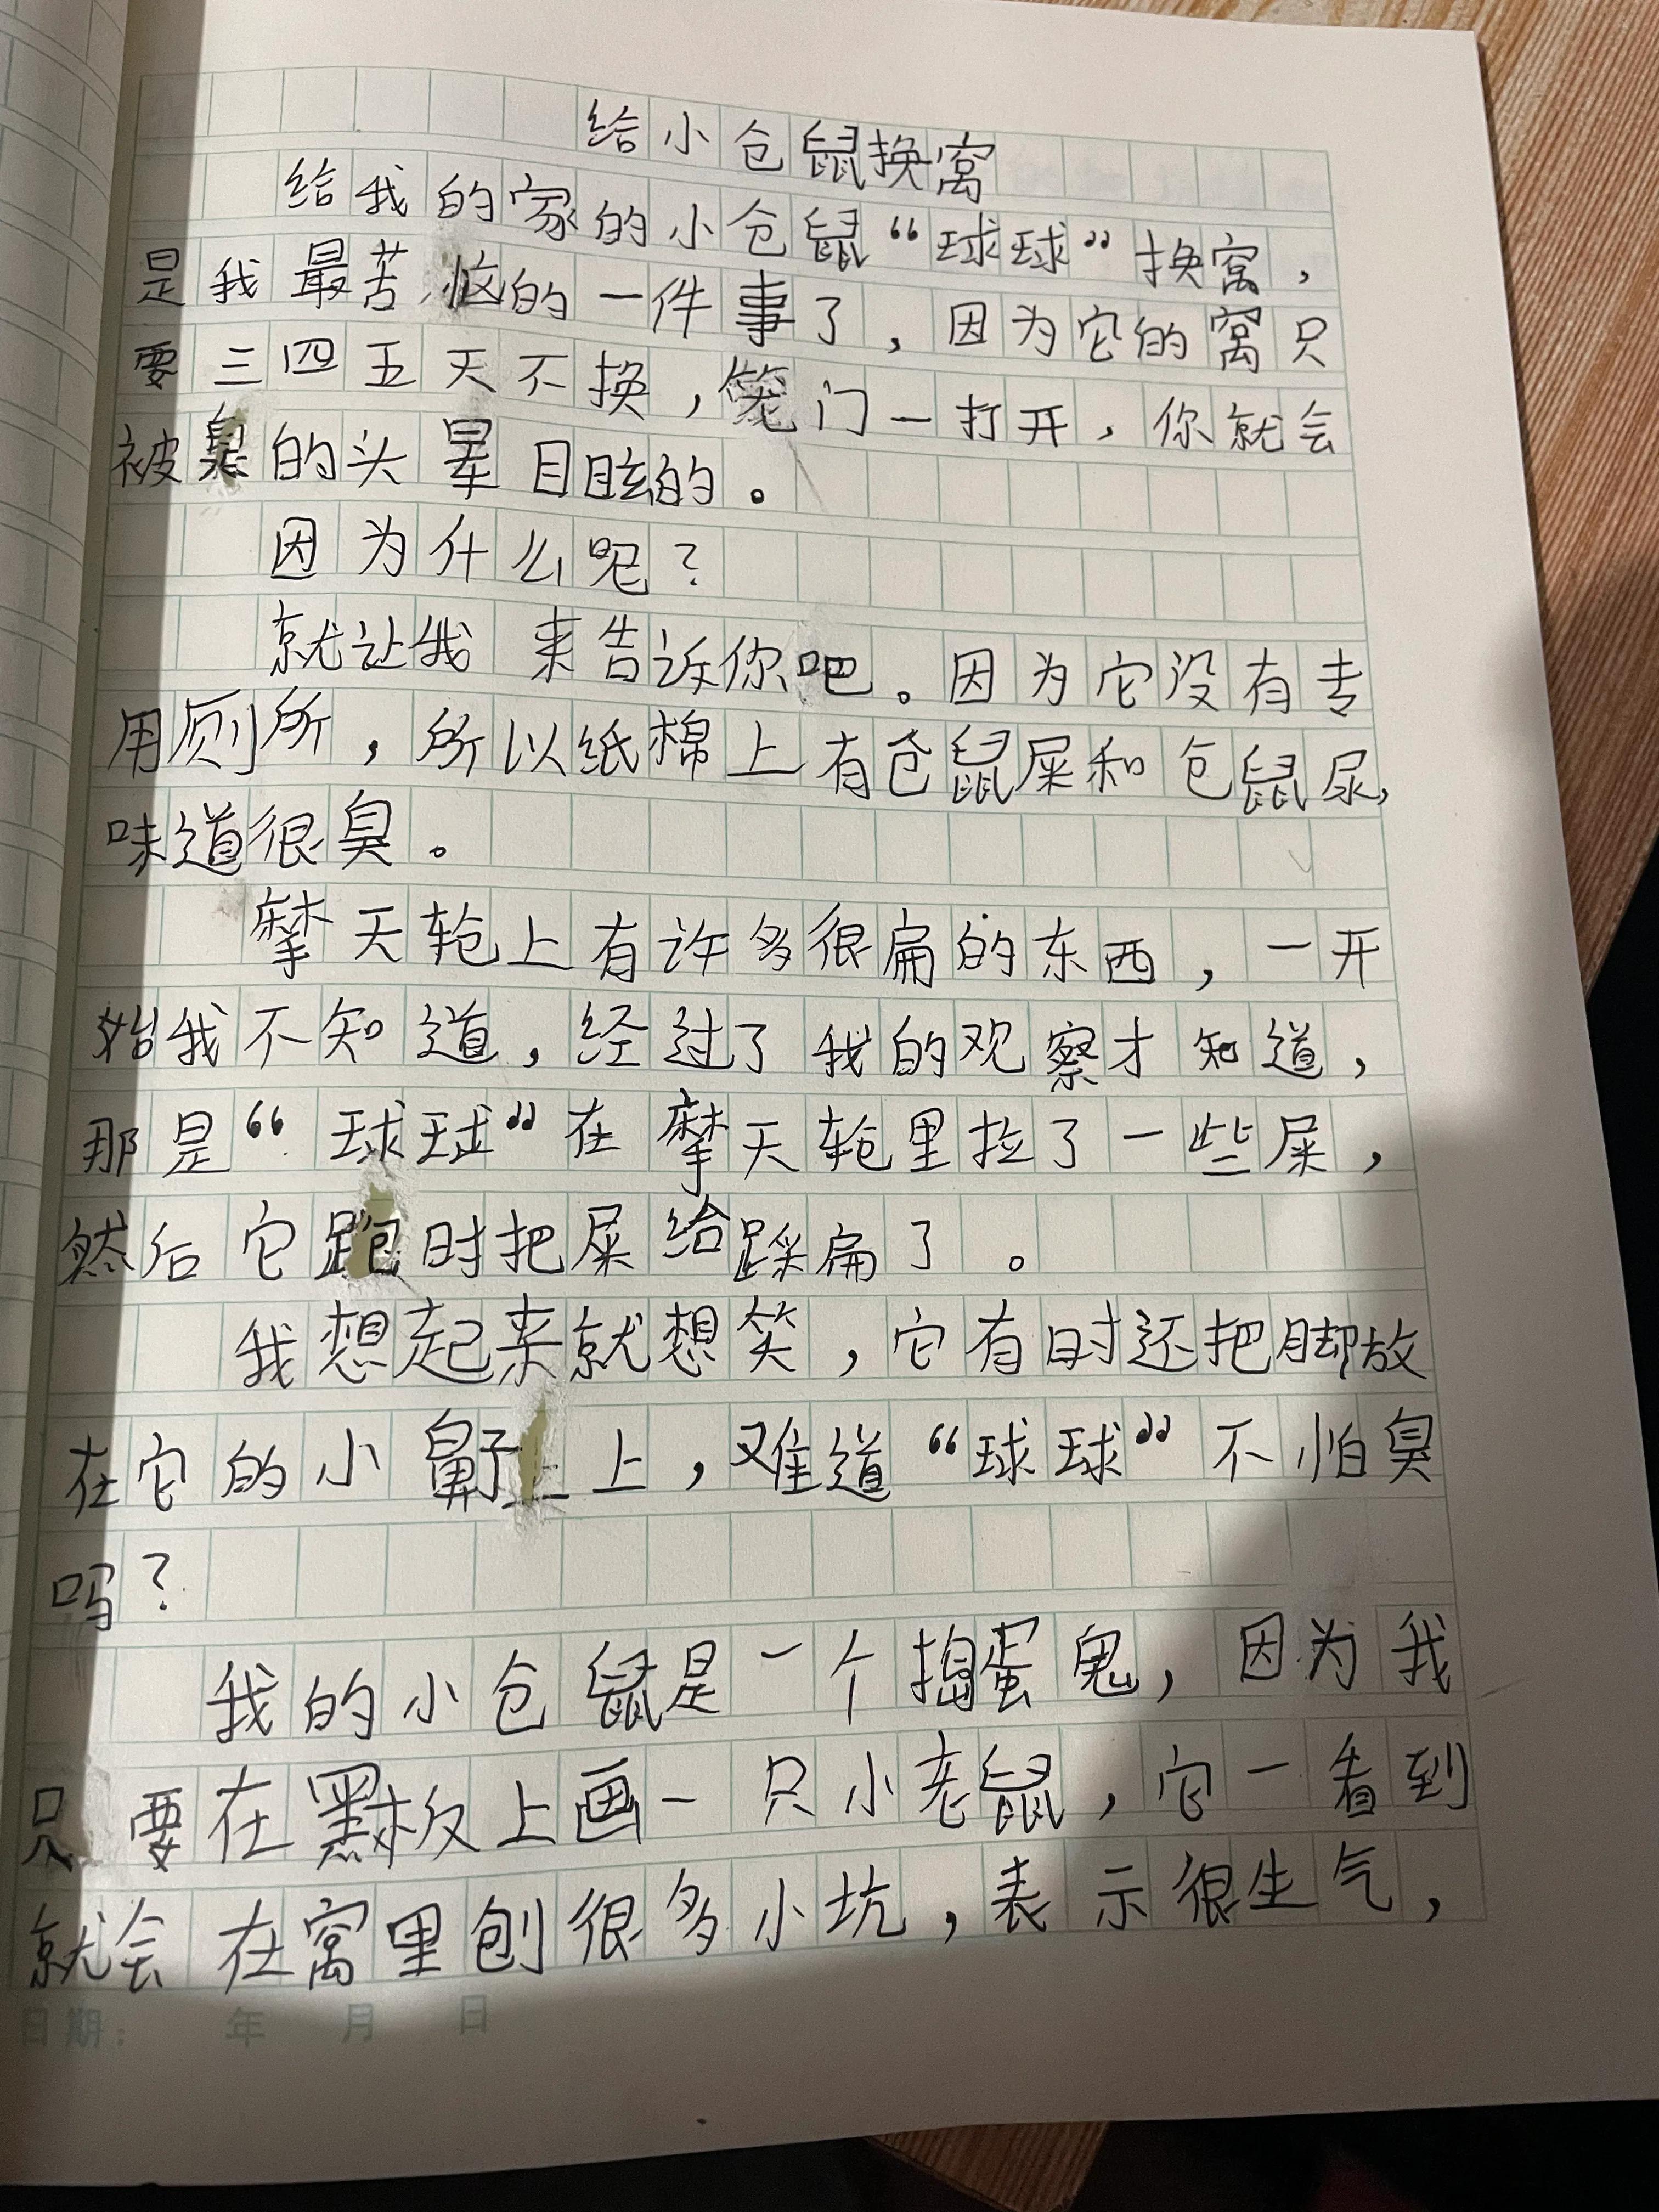 给小仓鼠换窝
给我的家的小仓鼠“球球”换窝，
是我最苦恼的一件事了，因为它的窝只
要三四五天不换，笼门一打开，你就会
被臭的头晕目眩的。
因为什么呢？
就让我来告诉你吧。因为它没有专
用厕所，所以纸棉上有仓鼠屎和仓鼠尿，
味道很臭。
摩天轮上有许多很扁的东西，一开
始我不知道，经过了我的观察才知道，
那是“球球”在摩天轮里拉了一些屎，
然后它跑时把屎给踩扁了。
我想起来就想笑，它有时还把脚放
在它的小鼻子上，难道“球球”不怕臭
吗？
我的小仓鼠是一个捣蛋鬼，因为我
只要在黑板上画一只小老鼠，它一看到
就会在窝里刨很多小坑，表示很生气，
日期： 年 月 日